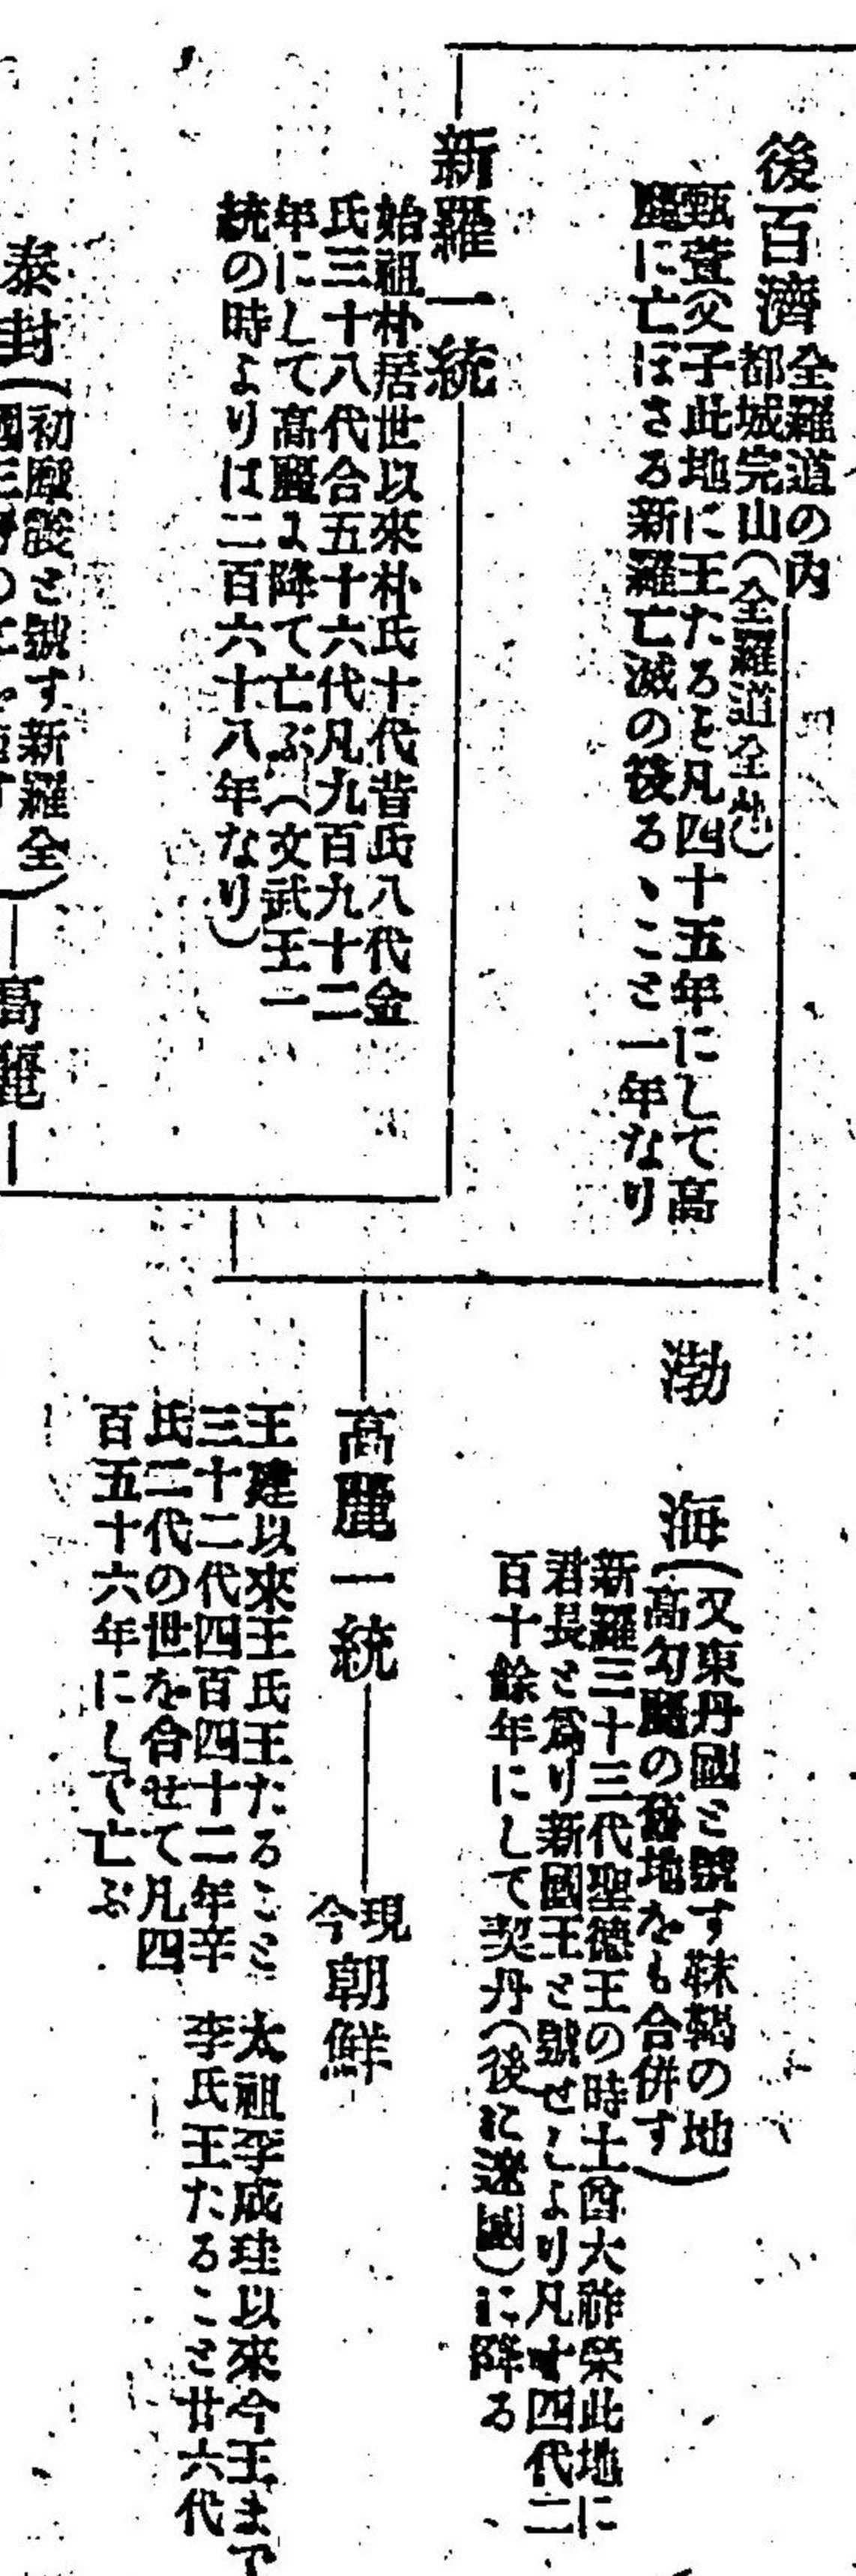 後百濟
全羅道の內
都城完山(全羅道全州)
甄萱父子此地に王たると凡四十五年にして高
麗に亡ぼさる新羅亡滅の後るゝこと一年なり
新羅一統
始祖朴居世以來朴氏十代昔氏八代金
氏三十八代合五十六代凡九百九十二
年にして高麗に降て亡ぶ(文武王一
統の時よりは二百六十八年なり)
泰封
(初摩震と號す新羅全
高麗
渤海
(又東丹國と號す靺鞨の地
高勾麗の舊地をも合併す)
新羅三十三代聖德王の時土酋大祚榮此地に
君長と爲り新國王と號せしより凡十四代二
百十餘年にして契丹(後に遼國)に降る
高麗一統
王建以來王氏王たること
三十二代四百四十二年辛
氏二代の世を合せて凡四
百五十六年にして亡ぶ
現今朝鮮
太祖李成珪以來今王まで
李氏王たること廿六代